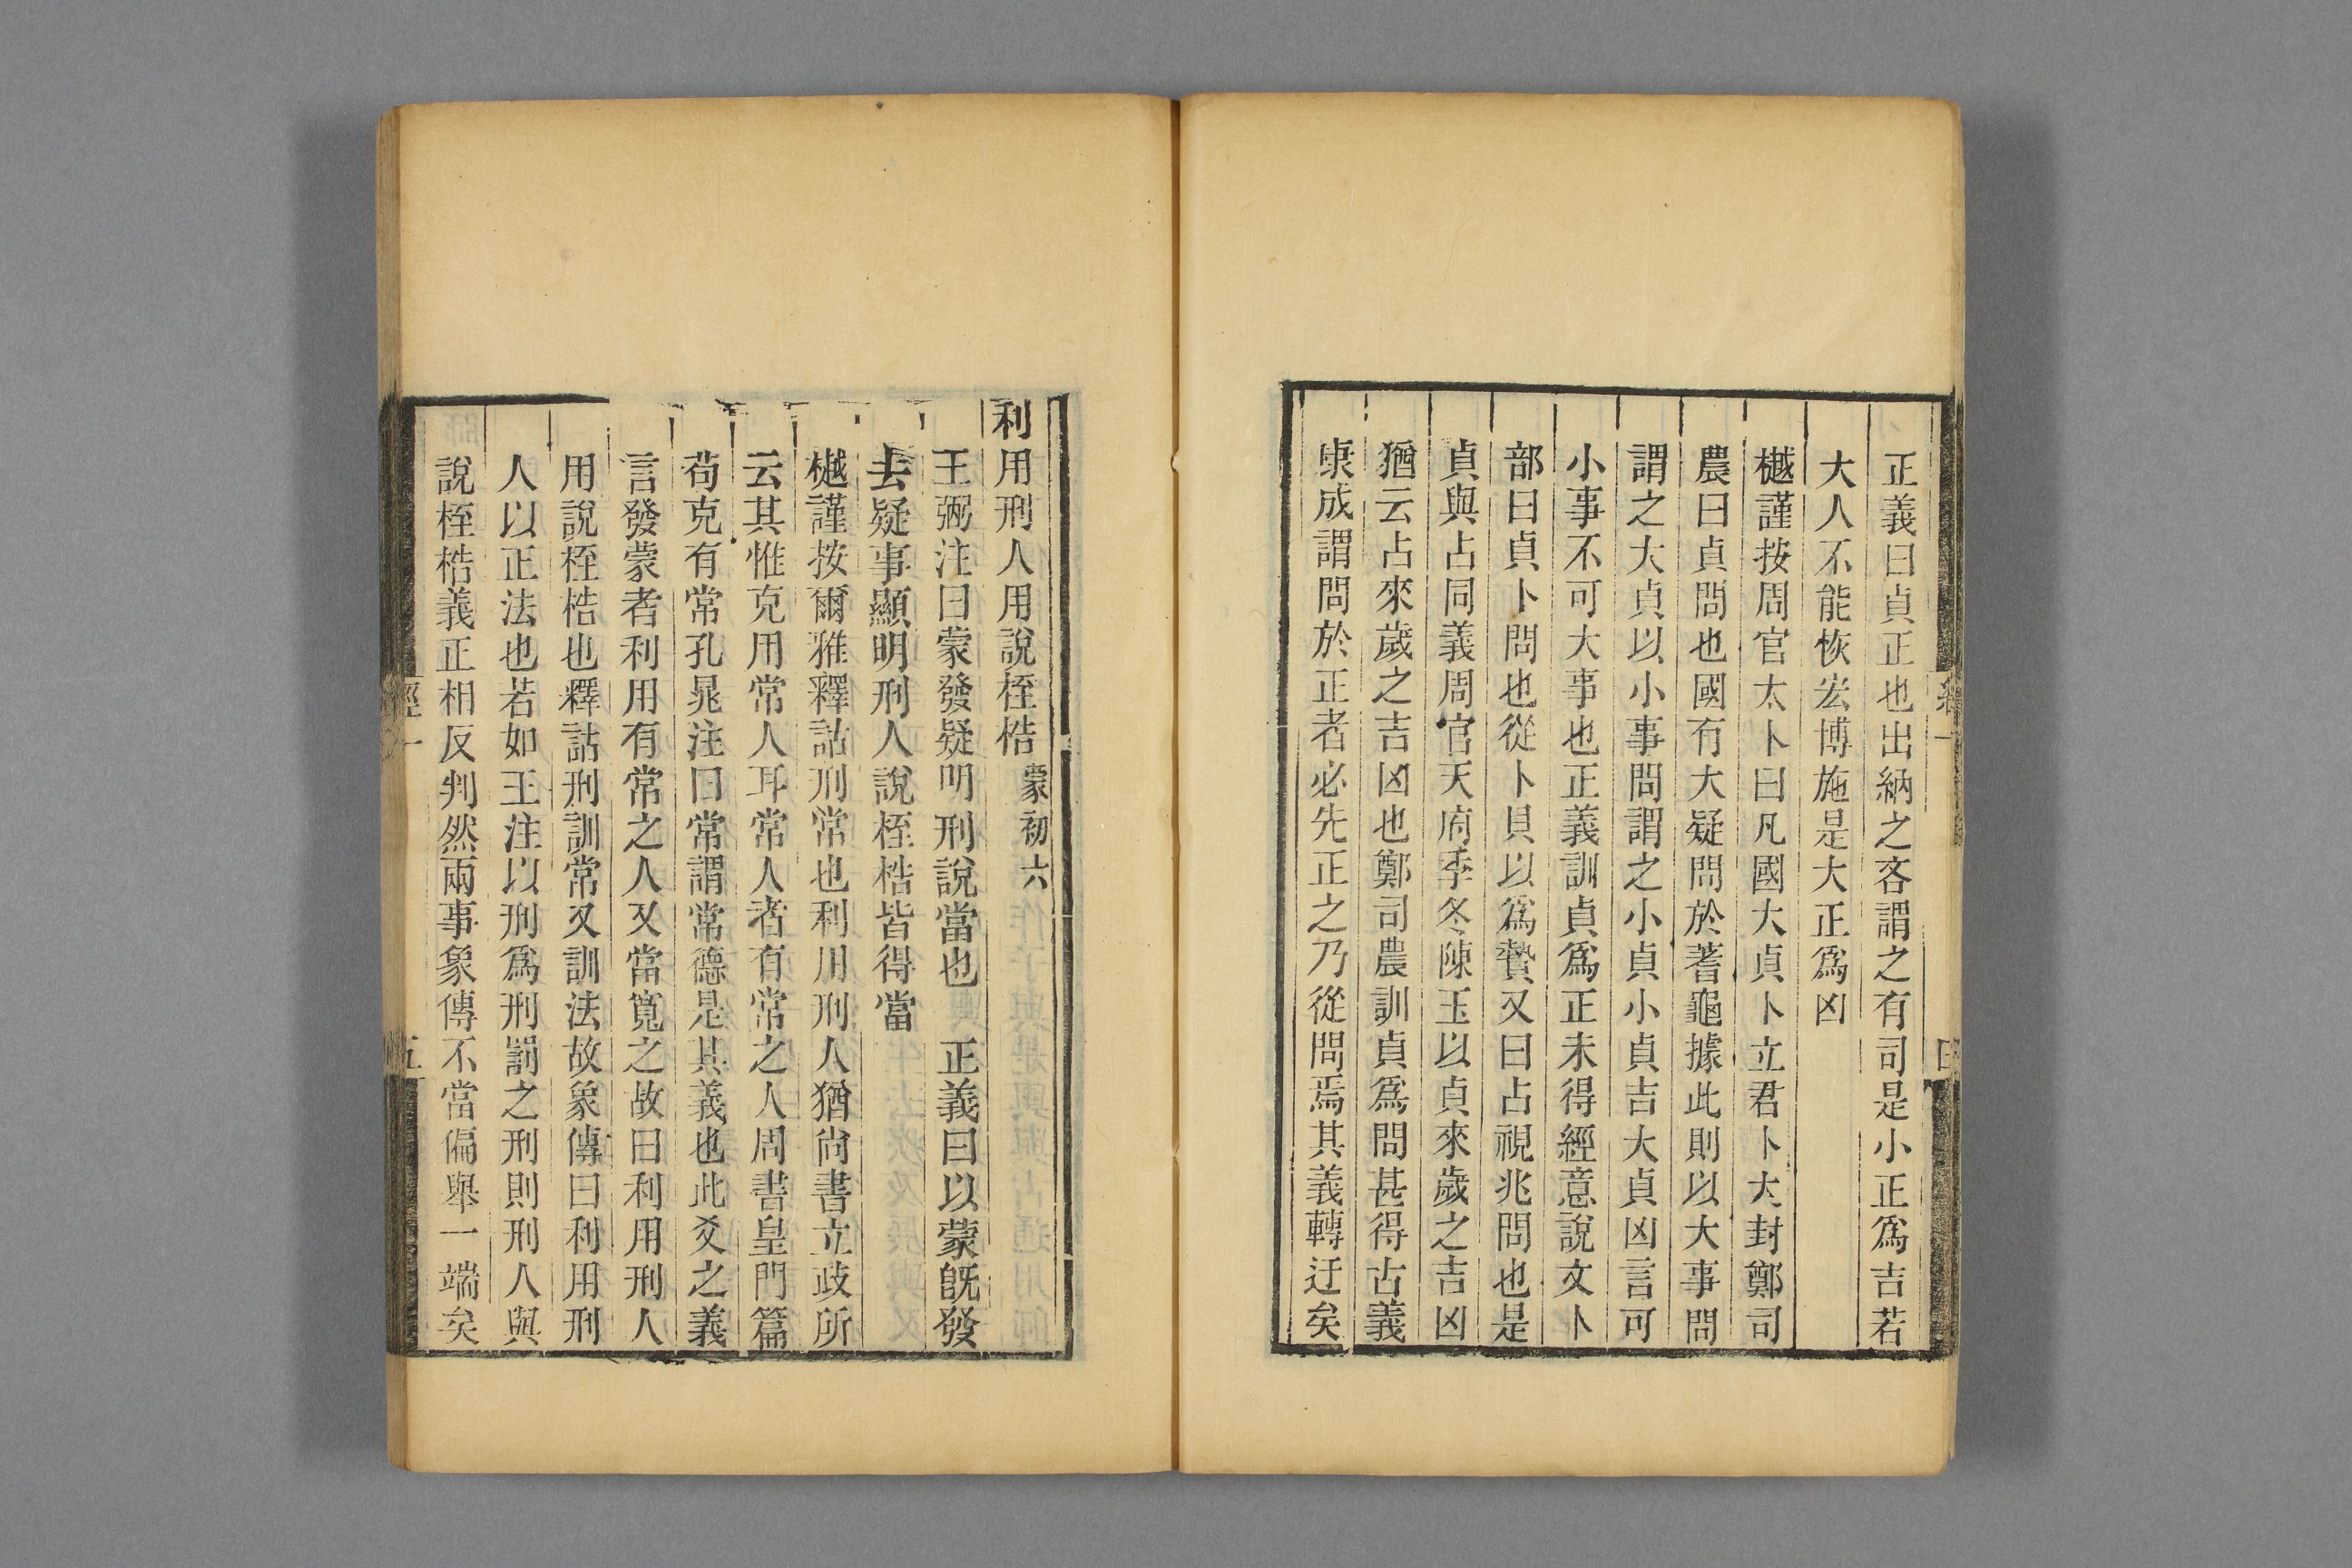 正義曰貞正也出納之吝謂之有司是小正爲吉若
大人不能恢宏博施是大正爲凶
樾謹按周官太卜曰凡國大貞卜立君卜大封鄭司
農曰貞問也國有大疑問於蓍龜據此則以大事問
謂之大貞以小事問謂之小貞小貞吉大貞凶言可
小事不可大事也正義訓貞爲正未得經意說文卜
部曰貞卜問也從卜貝以爲贄又曰占視兆問也是
貞與占同義周官天府季冬陳玉以貞來歲之吉凶
猶云占來歲之吉凶也鄭司農訓貞爲問甚得古義
康成謂問於正者必先正之乃從問焉其義轉迂矣
利用刑人用說桎梏蒙初六
王弼注曰蒙發疑明刑說當也 正義曰以蒙旣發
去疑事顯明刑人說桎梏皆得當
樾謹按爾雅釋詁刑常也利用刑人猶尙書立政所
云其惟克用常人耳常人者有常之人周書皇門篇
苟克有常孔晁注曰常謂常德是其義也此爻之義
言發蒙者利用有常之人又當寬之故曰利用刑人
用說桎梏也釋詁刑訓常又訓法故象傳曰利用刑
人以正法也若如王注以刑爲刑罰之刑則刑人與
說桎梏義正相反判然兩事象傳不當偏舉一端矣
經一
五